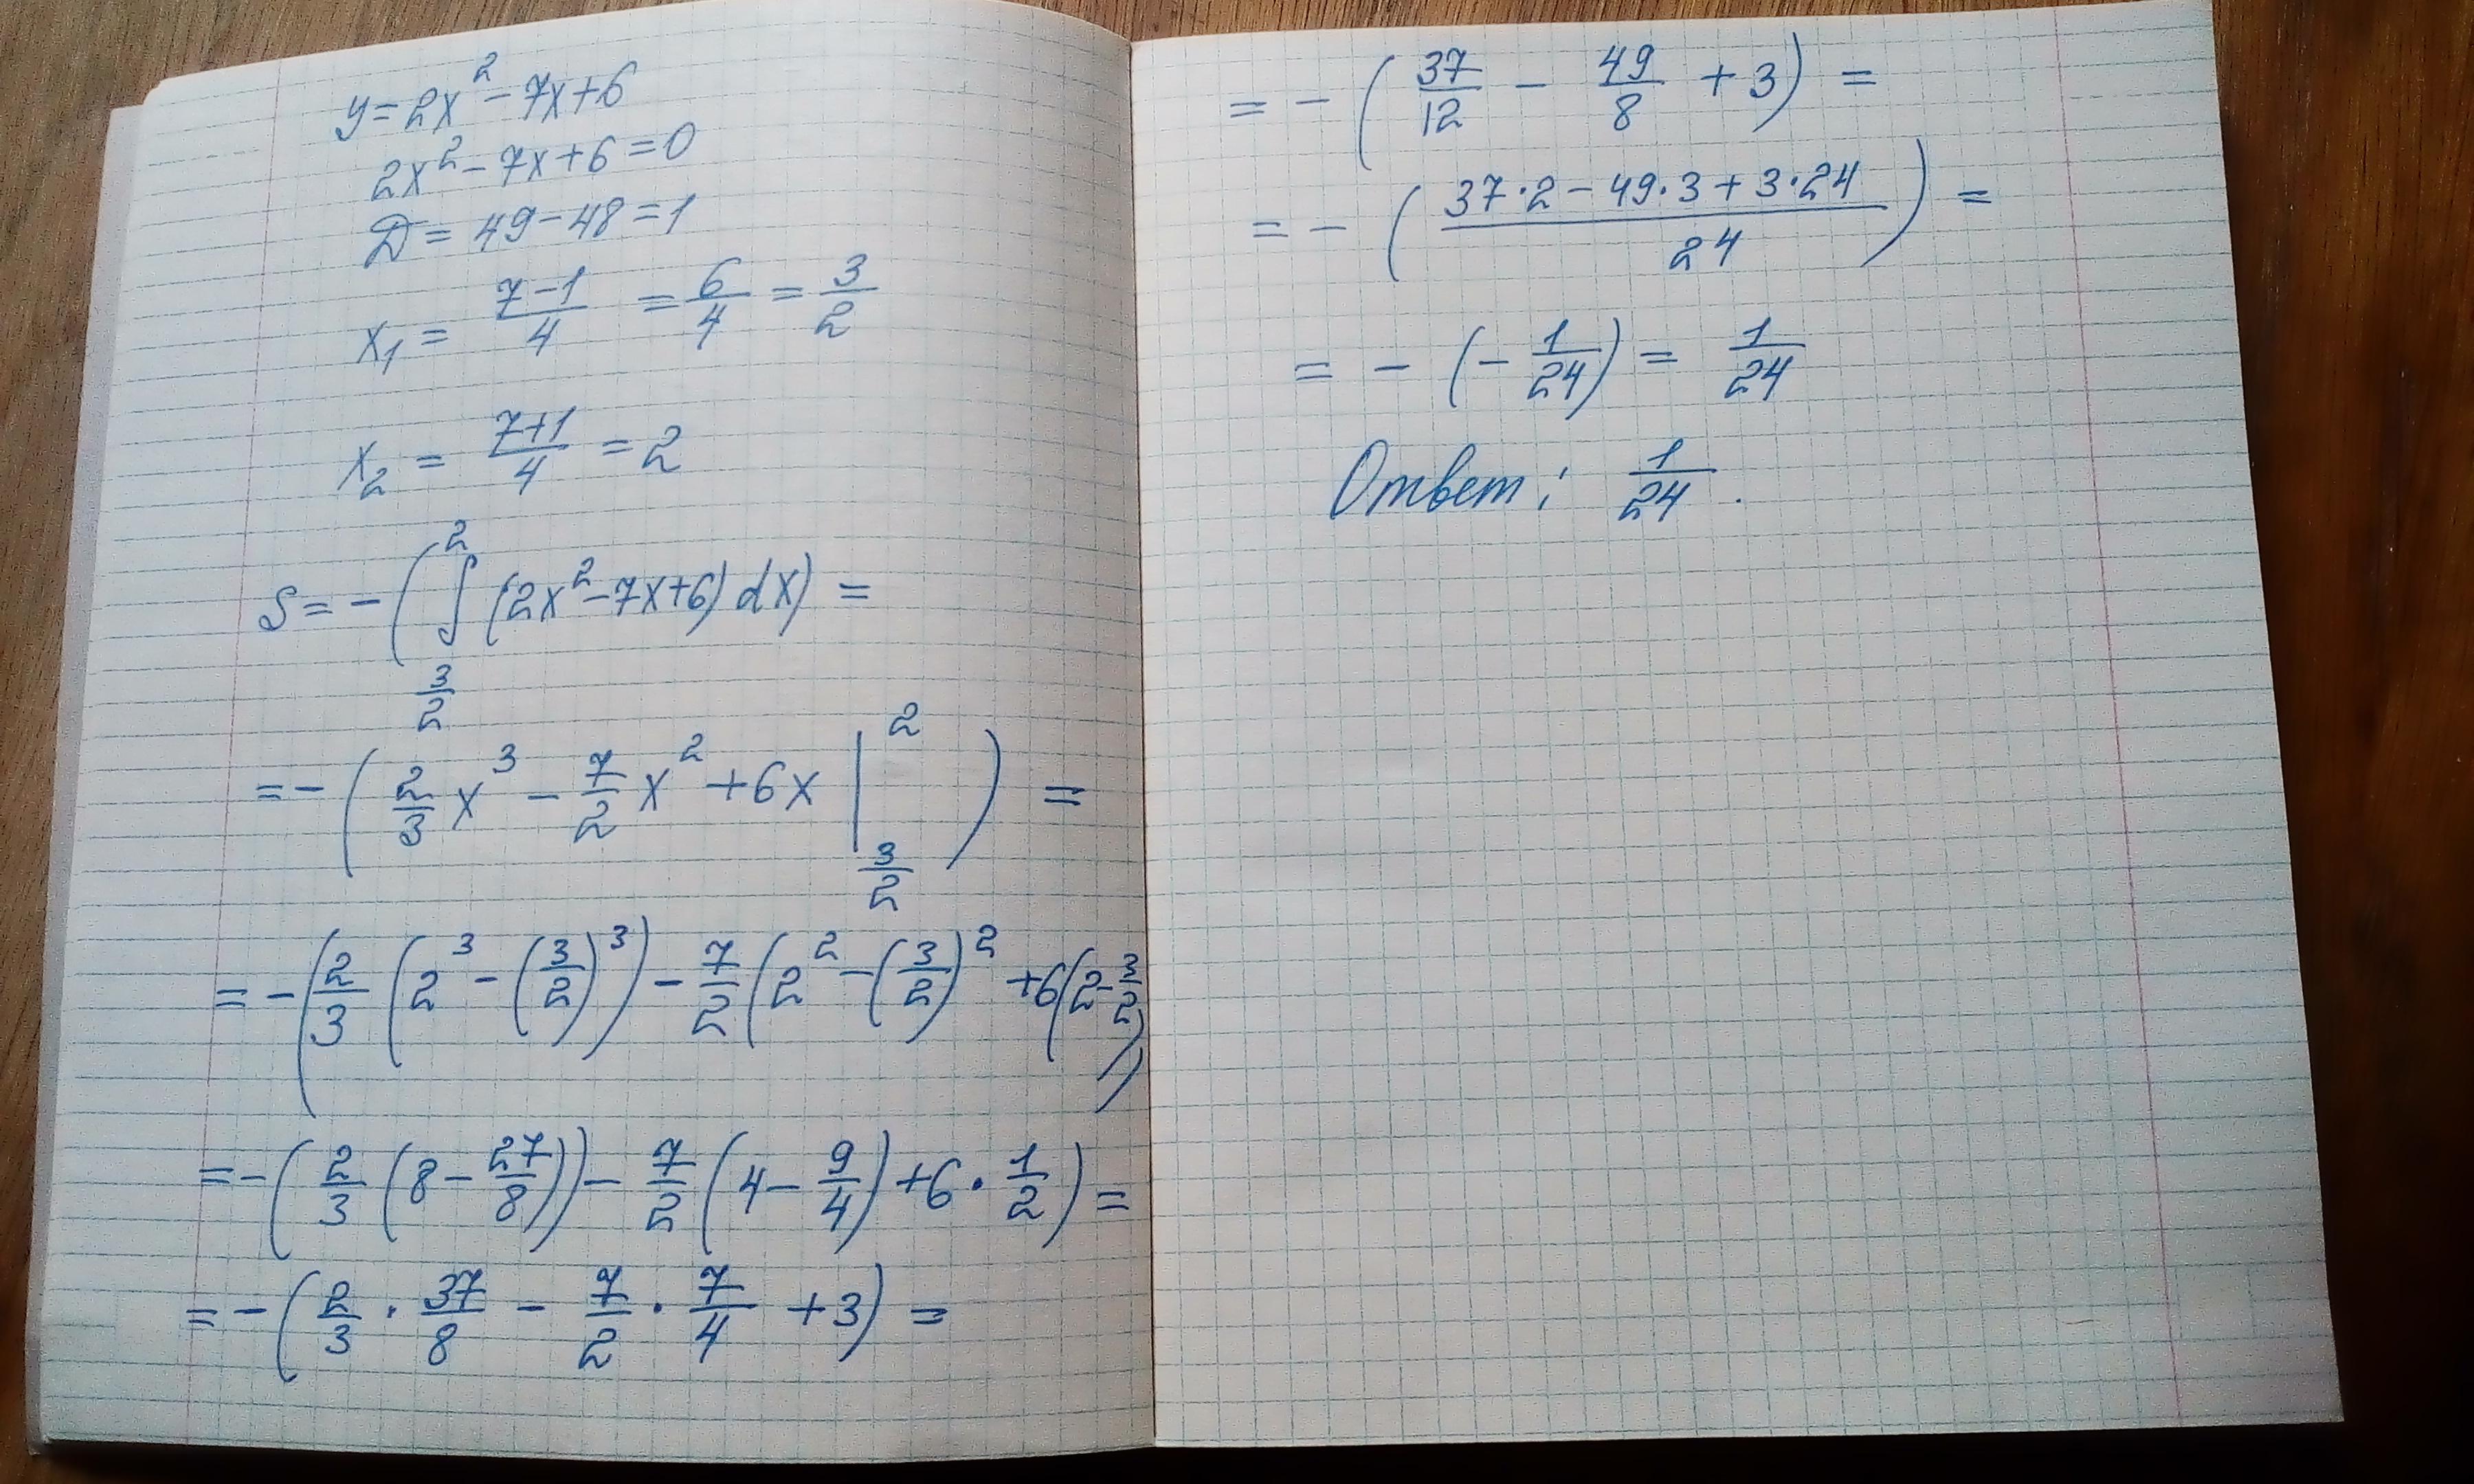 y = 2x² - 7x + 6
2x² - 7x + 6 = 0
D = 49 - 48 = 1
x₁ = (7-1)/4 = 6/4 = 3/2
x₂ = (7+1)/4 = 2
S = -(∫_{3/2}^{2} (2x² - 7x + 6) dx) =
= -(2/3 x³ - 7/2 x² + 6x |_{3/2}^{2}) =
= -(2/3 (2³ - (3/2)³) - 7/2 (2² - (3/2)² + 6(2 - 3/2))
= -(2/3 (8 - 27/8)) - 7/2 (4 - 9/4) + 6 · 1/2) =
= -(2/3 · 37/8 - 7/2 · 7/4 + 3) =
= -(37/12 - 49/8 + 3) =
= -((37·2 - 49·3 + 3·24)/24) =
= -(-1/24) = 1/24
Ответ: 1/24.